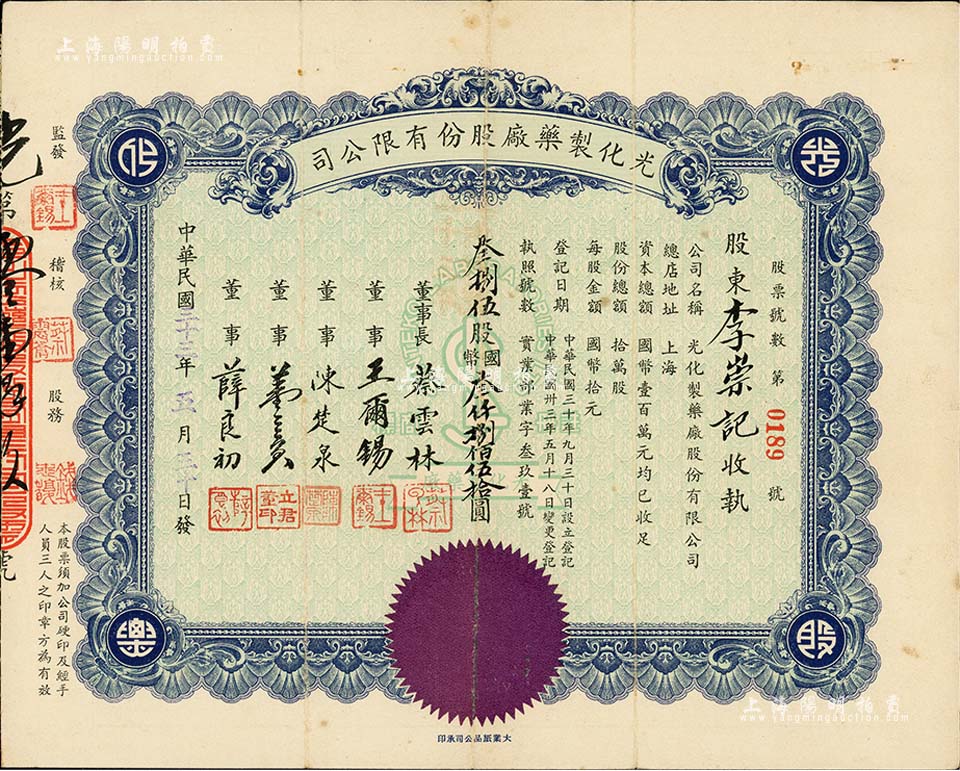 上海陽明拍賣
www.yangmingauction.com
光化製藥廠股份有限公司
光
化
股
藥
股票號數 第 0189 號
股東 李崇記 收執
公司名稱 光化製藥廠股份有限公司
總店地址 上海
資本總額 國幣壹百萬元均已收足
股份總額 拾萬股
每股金額 國幣拾元
登記日期 中華民國三十年九月三十日設立登記
中華民國卅三年五月十八日變更登記
執照號數 實業部業字叁玖壹號
叁捌伍股國幣叁仟捌佰伍拾圓
董事長 蔡雲林
董事 王爾錫
董事 陳楚泉
董事
董事 薛良初
中華民國三十三年五月三十日發
監發
稽核
股務
本股票須加公司硬印及經手
人員三人之印章方為有效
光
第
號
大業紙品公司承印
上海陽明拍賣
www.yangmingauction.com
上海陽明拍賣
www.yangmingauction.com
上海陽明拍賣
www.yangmingauction.com